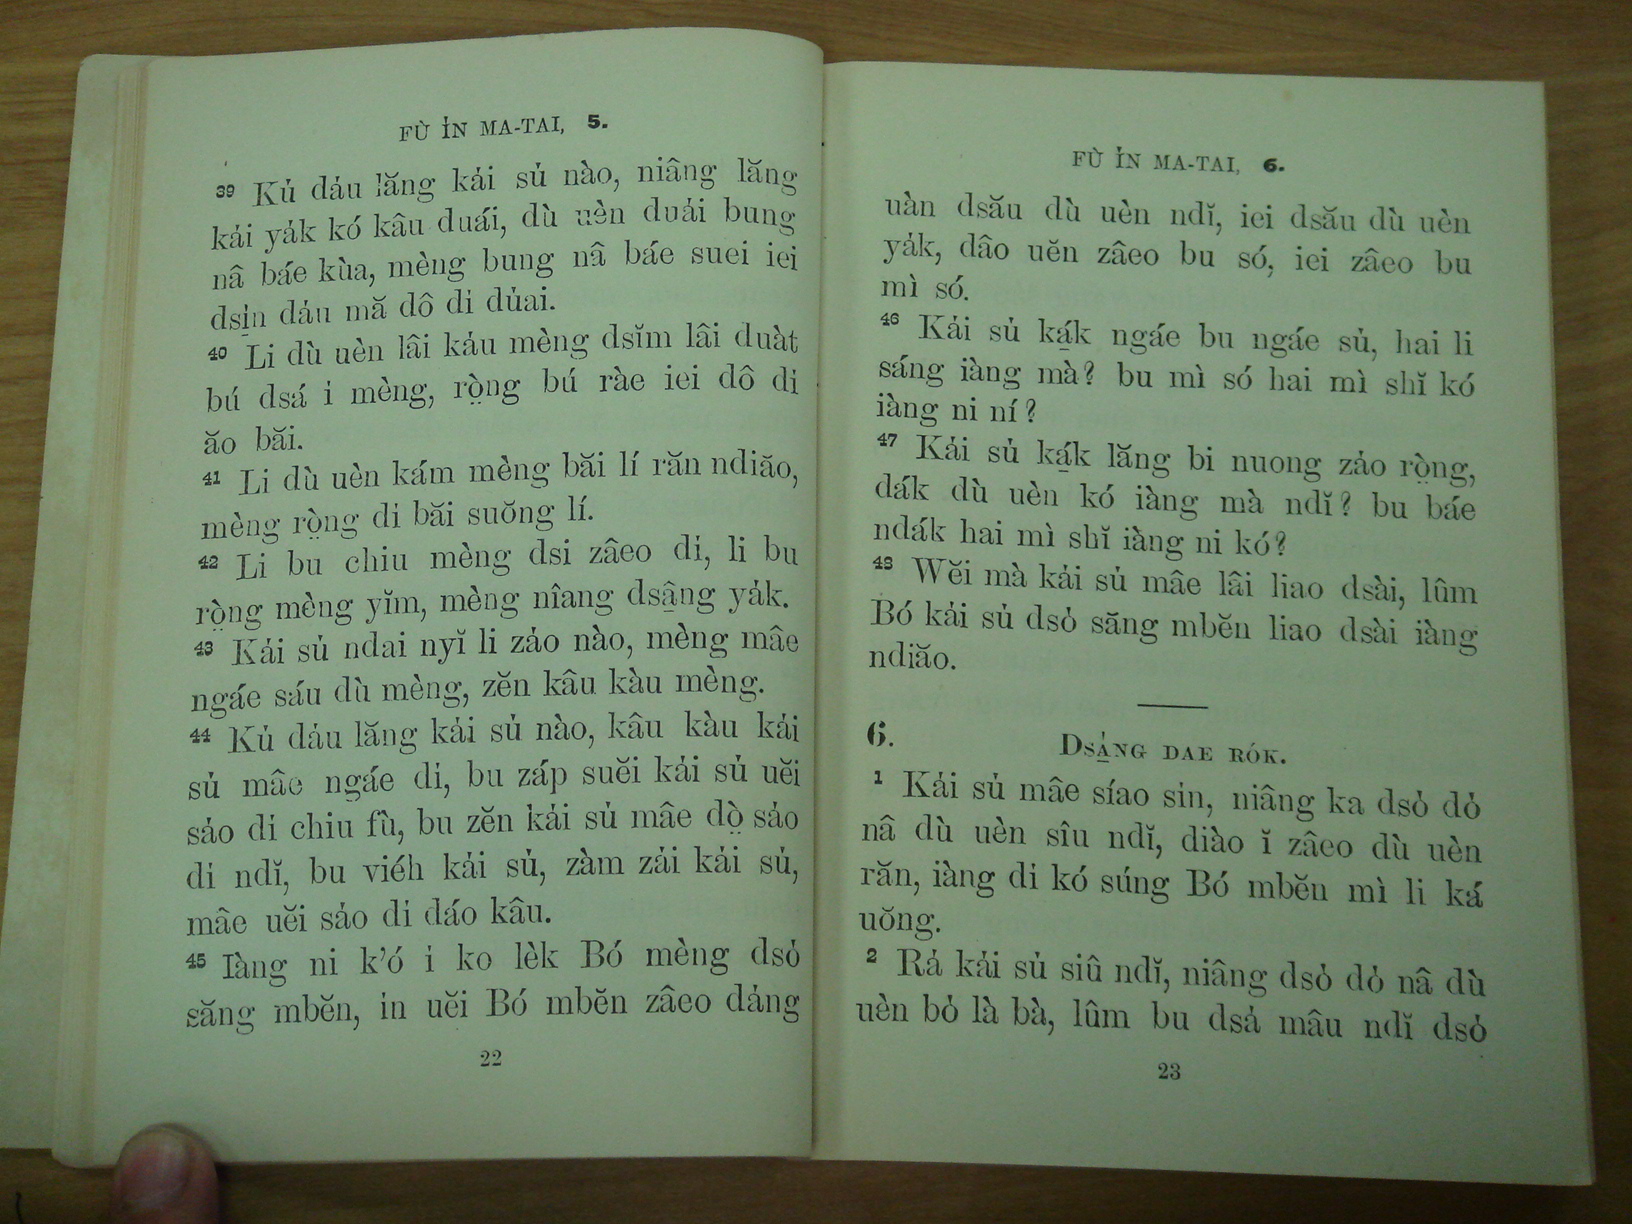 FÙ ỈN MA-TAI, 5.
39 Kủ dảu lăng kải sủ nào, niâng lăng
kải yảk kó kâu duái, dù uèn duải bung
nâ báe kùa, mèng bung nâ báe suei iei
dsi̱n dảu mă dô di dủai.
40 Li dù uèn lâi kảu mèng dsĭm lâi duàt
bú dsá i mèng, rò̤ng bú ràe iei dô di
ăo băi.
41 Li dù uèn kám mèng băi lí răn ndiăo,
mèng rò̤ng di băi suŏng lí.
42 Li bu chiu mèng dsi zâeo dỉ, li bu
rò̤ng mèng yĭm, mèng nîang dsâ̱ng yảk.
43 Kải sủ ndai nyĭ li zảo nào, mèng mâe
ngáe sáu dù mèng, zĕn kâu kàu mèng.
44 Kủ dảu lăng kải sủ nào, kâu kàu kải
sủ mâe ngáe dỉ, bu záp suĕi kải sủ uĕi
sảo di chiu fù, bu zĕn kải sủ mâe dò̤ sảo
di ndĭ, bu viéh kải sủ, zàm zải kải sủ,
mâe uĕi sảo dỉ dáo kâu.
45 Iàng ni k’ó ỉ ko lèk Bó mèng dsỏ
săng mbĕn, ỉn uĕi Bó mbĕn zâeo dảng
22
FÙ ỈN MA-TAI, 6.
uàn dsău dù uèn ndĭ, iei dsău dù uèn
yảk, dâo uĕn zâeo bu só, iei zâeo bu
mì só.
46 Kải sủ ká̱k ngáe bu ngáe sủ, hai li
sáng iàng mà? bu mì só hai mì shĭ kó
iàng ni ní?
47 Kải sủ ká̱k lăng bi nuong zảo rò̤ng,
dák dù uèn kó iàng mà ndĭ? bu báe
ndák hai mì shĭ iàng ni kó?
48 Wĕi mà kải sủ mâe lâi liao dsài, lûm
Bó kải sủ dsỏ săng mbĕn liao dsài iàng
ndiăo.
6. DSẢ̱NG DAE RÓK.
1 Kải sủ mâe síao sin, niâng ka dsỏ dỏ
nâ dù uèn sîu ndĭ, diào ĭ zâeo dù uèn
răn, iàng di kó súng Bó mbĕn mì li ká
uŏng.
2 Rả kải sủ siû ndĭ, niâng dsỏ dỏ nâ dù
uèn bỏ là bà, lûm bu dsả mâu ndĭ dsỏ
23